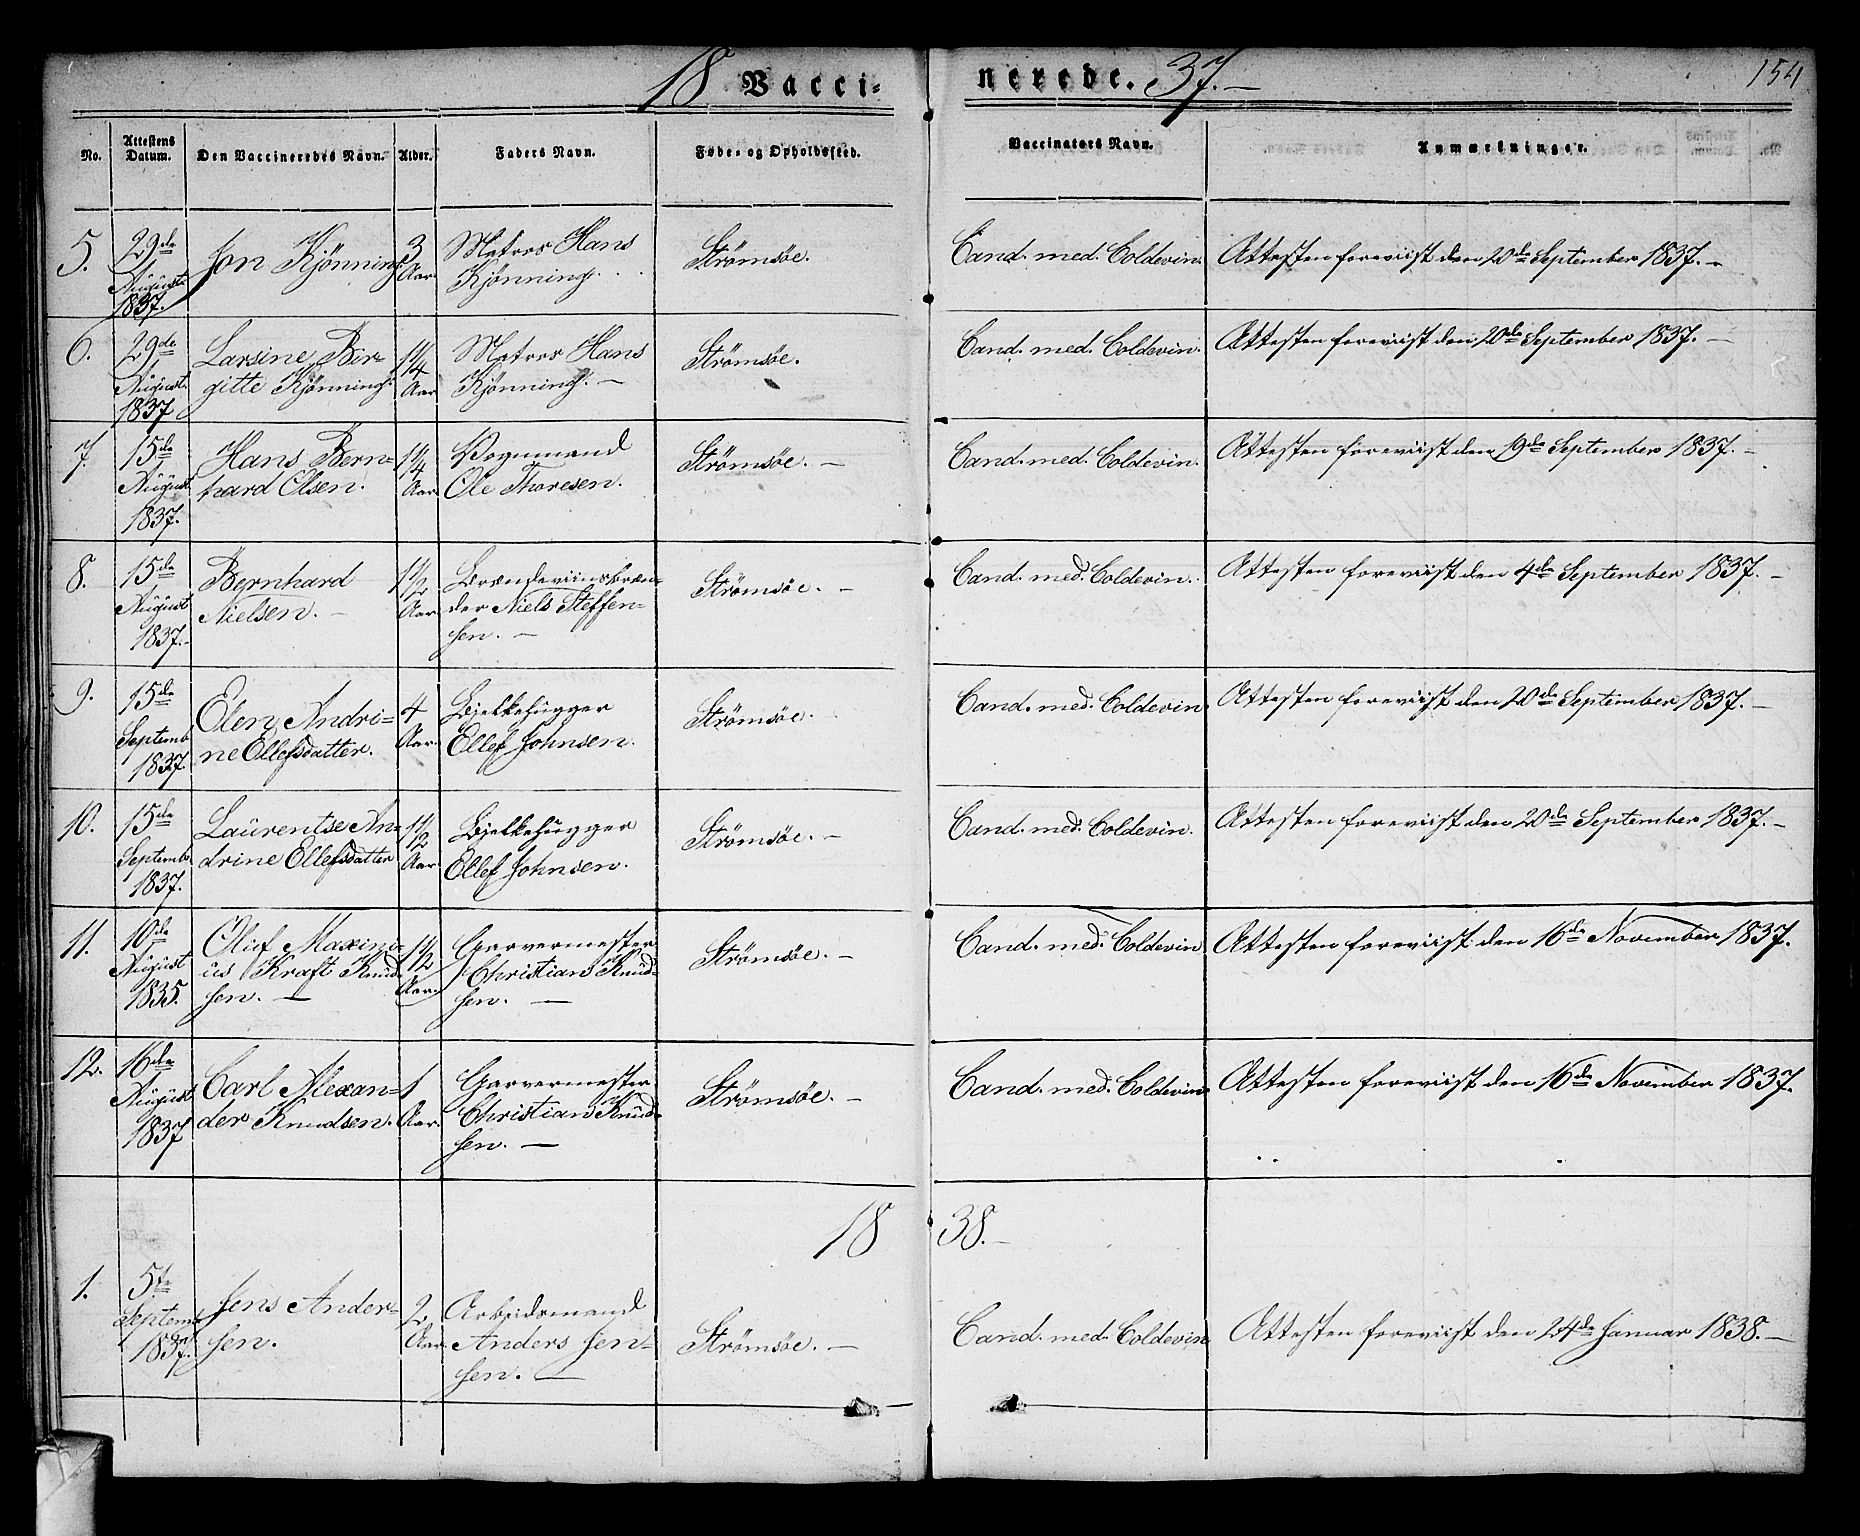 18 Vacci-
nerede. 37.-
154
No.
Attestens
Datum.
Den Vaccineredes Navn.
Alder.
Faders Navn.
Føde- og Opholdssted.
Vaccinators Navn.
Anmærkninger.
5.
29de
August
1837.
Jon Kjönning.
3
Aar.
Matros Hans
Kjönning.
Strömsöe.
Cand. med. Coldevin.
Attesten foreviist den 20de September 1837.-
6.
29de
August.
1837
Larsine Bir-
gitte Kjönning.
1 1/4
Aar
Matros Hans
Kjönning.-
Strömsöe.
Cand. med. Coldevin.
Attesten foreviist den 20de September 1837.-
7.
15de
August
1837.
Hans Bern-
hard Olsen.
1 1/4
Aar.
Vognmand
Ole Thoresen.
Strömsöe.-
Cand. med. Coldevin.
Attesten foreviist den 19de September 1837.-
8.
15de
August
1837.-
Bernhard
Nielsen.-
1 1/2
Aar.
Brændeviinsbræn-
der Niels Steffen-
sen.-
Strömsöe.-
Cand. med. Coldevin.
Attesten foreviist den 4de September 1837.-
9.
15de
Septemb
1837.
Elen Andri-
ne Ellefsdatter.
4
Aar.
Bjelkehugger
Ellef Johnsen.
Strömsöe.
Cand. med. Coldevin.
Attesten foreviist den 20de September 1837.-
10.
15de
Septemb
1837.
Laurentse An-
drine Ellefsdatter
1 1/2
Aar.
Bjelkehugger
Ellef Johnsen.
Strömsöe.-
Cand. med. Coldevin.
Attesten foreviist den 20de September 1837.-
11.
10de
August
1835.
Oluf Maximi-
us Kraft Knud-
sen.-
1 1/2
Aar.
Garvermester
Christian Knud-
sen.-
Strömsöe.-
Cand. med. Coldevin
Attesten foreviist den 16de November 1837.
12.
16de
August
1837
Carl Alexan-
der Knudsen.
1
Aar.
Garvermester
Christian Knud-
sen.-
Strömsöe.-
Cand. med. Coldevin
Attesten foreviist den 16de November 1837.
18 38.-
1.
5te
Septemb
1837.
Jens Ander-
sen.
2
Aar.
Arbeidsmand
Anders Jen-
sen.-
Strömsöe.-
Cand. med. Coldevin
Attesten foreviist den 24de Januar 1838.-